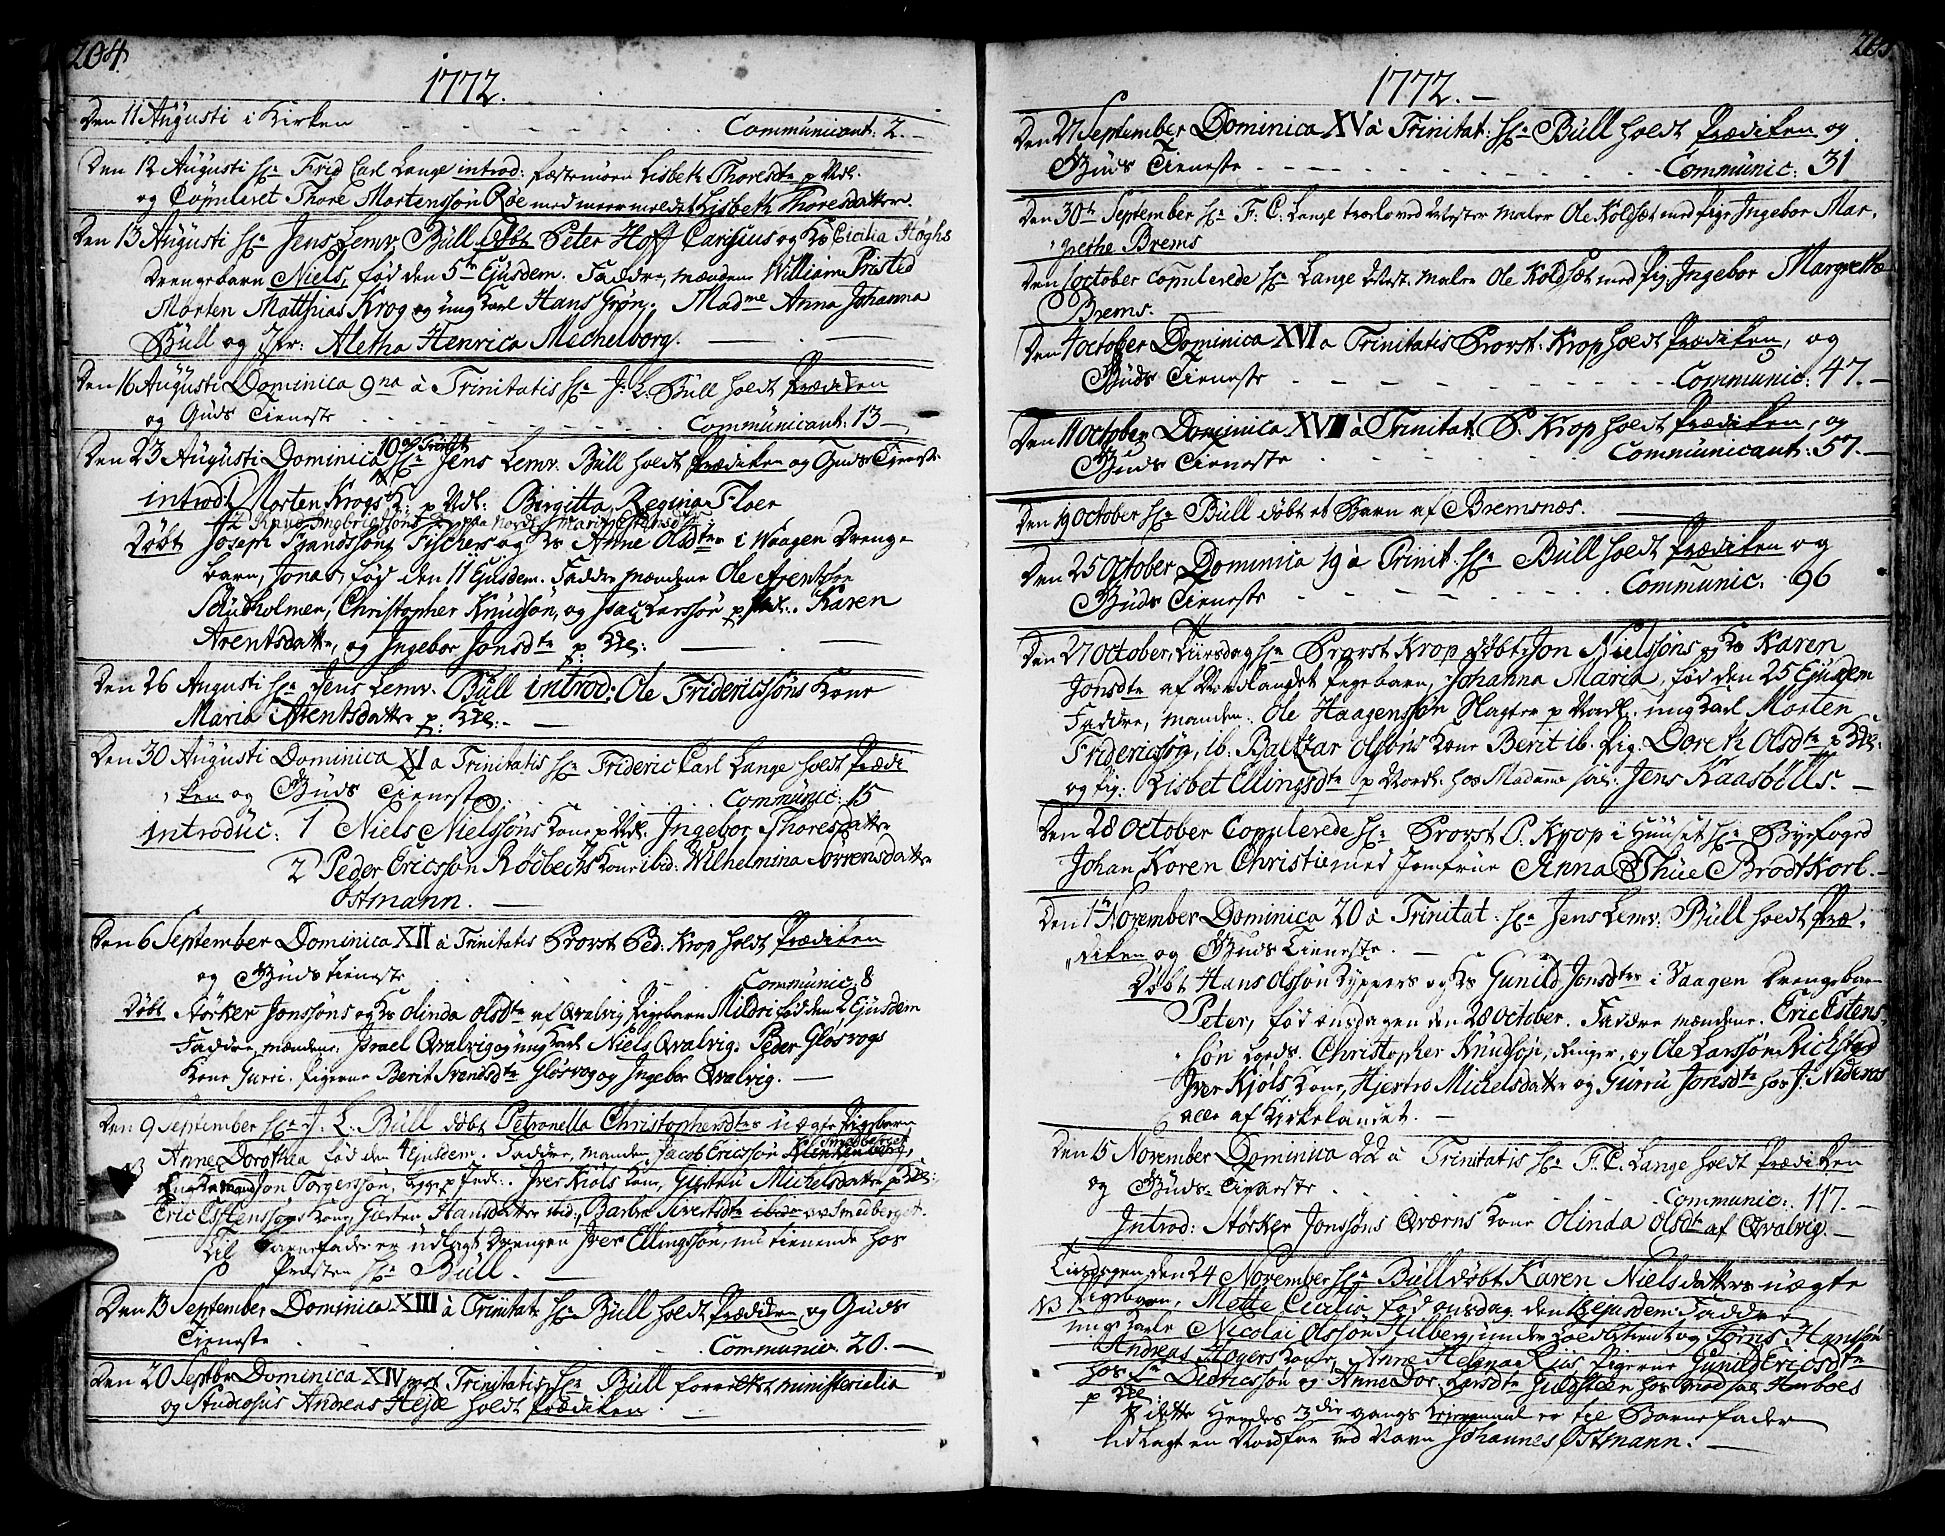 204.
1772.
Den 11 Augusti i Kirken - - - Communicant: 2. -
Den 12 Augusti Hr Frid Carl Lange introd: fæstemøen Lisbeth Thoresdtr p Ndl.
og Copuleret Thore Mortenssøn Røe med meermeldet Lisbeth Thoresdatter.
Den 13 Augusti Hr Jens Lemv. Büll døbt Peter Hoff Carisius og Ks Cicilia Høghs
Drengebarn Niels, fød den 5te Ejusdem. Faddre, mændene William Pristed
Morten Matthias Krog og ung Karl Hans Grøn. Madme Anna Johanna
Büll og Jfr: Aletha Henrica Mechelborg.
Den 16 Augusti Dominica 9na à Trinitatis Hr J. L. Büll holdt Prædiken
og Guds Tieneste - - - Communicant: 13 -
Den 23 Augusti Dominica 10 a Trinit Hr Jens Lemv. Büll holdt Prædiken og Guds Tieneste
introd: Morten Krogs K: p Ndl: Birgitta Regina Floer
Døbt Joseph Frandssøns Fischers og Ks Anne Olsdtr i Waagen Drenge
barn, Jonas, fød den 11 Ejusdem. Faddre mændene Ole Arentsøn
Christopher Knudsøn, og Isac Larssøn p Ind:. Karen
Arentsdatter, og Ingebor Jonsdtr p: Kl:
Den 26 Augusti Hr Jens Lemv. Büll introd: Ole Fridericssøns Kone
Maria Arentsdatter p: Kl: -
Den 30 Augusti Dominica XI a Trinitatis Hr Frideric Carl Lange holdt Prædi
ken og Guds Tieneste - - - Communic: 15
introduc: 1 Niels Nielssøns Kone p Ndl. Ingebor Thoresdatter
2 Peder Ericssøn Rødbechs Kone ibid. Wilhelmina Sørrensdatter
Ostmann. -
Den 6 September Dominica XII à Trinitatis Provst Ped: Krop holdt Prædiken
og Guds tieneste - - - Communic: 8
Døbt Størker Jonssøns og Ks Olinda Olsdtr af Qvalvig Pigebarn Mildri fød den 2 Ejusdem
Faddre, mændene. Israel Qvalvig og ung Karl Niels Qvalvig. Peder Glosvogs
Kone Guri. Pigerne Berit Svendsdtr Glosvog og Ingebor Qvalvig. -
Den 9 September Hr J. L. Büll døbt Petronella Christophersdtrs uægte Pigebarn
NB Anne Dorothea fød den 4 Ejusdem. Faddre, manden Jacob Ericssøn Smedberget
Jon Torgerssøn, begge p Ind:. Iver Kiøls Kone, Giertru Michelsdatter p Kl:
Eric Estenssøns Kone, Giertru Hansdatter ibid:, Barbra Sivertsdtr ibid: ov Smedberget.
Til Barnefader er udlagt drengen Iver Ellingssøn, nu tienende hos
Præsten Hr Büll. -
Den 13 September Dominica XIII à Trinitat: Hr Büll holdt Prædiken og Guds
Tieneste - - - Communic. 20. -
Den 20 Septbr Dominica XIV post Trinitatis, Hr Büll forrettet ministerialia
og Studiosus Andreas Hejde holdt Prædiken. -
205
1772. -
Den 27 September Dominica XV à Trinitat: Hr Büll holdt Prædiken og
Guds Tieneste - - - Communic: 31
Den 30te September Hr F. C. Lange trolovede Mester maler Ole Koldsæt med Pige Ingebor Mar-
grethe Brems
Den 1 October copulerede Hr Lange Mest. maler Ole Koldsæt med Pig. Ingebor Margrethe
Brems. -
Den 4 October Dominica XVI a Trinitatis Provst. Krop holdt Prædiken, og
Guds Tieneste - - - Communic: 47. -
Den 11 October Dominica XVII à Trinitat. P. Krop holdt Prædiken, og
Guds Tieneste - - - Communicant: 57. -
Den 19 October Hr Büll døbt et Barn af Bremsnæs. -
Den 25 October Dominica 19 à Trinit. Hr Büll holdt Prædiken og
Guds Tieneste - - - Communic: 96
Den 27 October, Tiirsdag Hr Provst Krop døbt, Jon Nielssøns og Ks Karen
Jonsdtr af Nordlandet Pigebarn, Johanna Maria, fød den 25 Ejusdem
Faddre, manden. Ole Haagenssøn Slagter p Nordl. ung Karl Morten
Fridericssøn, ib. Baltzar Olssøns Kone Berit ib. Pig. Doreth Olsdtr p Kl:
og Pig: Lisbet Ellingsdtr p Nordl: hos Madame sal: Jens Kaasbølls. -
Den 28 October Copulerede Hr Provst P. Krop i Huuset Hr Byefoged
Johan Koren Christie med Jomfrue Anna Thue Brodtkorb. -
Den 1te November Dominica 20 à Trinitat: Hr Jens Lemv: Büll holdt Præ-
diken og Guds Tieneste. -
Døbt Hans Olssøn Kyppers og Ks Gunild Jonsdtr i Vaagen Drengebarn
Peter, fød onsdagen den 28 October. Faddre mændene. Eric Estens-
søn Christopher Knudsøn, Ringer, og Ole Larssøn Richstad
Iver Kjøls Kone, Hjertru Michelsdatter og Gurru Jonsdtr hos J. Nideros
alle af Kirkelandet. -
Den 15 November Dominica 22 à Trinitatis Hr F. C. Lange holdt Prædiken
og Guds Tieneste - - - Communic: 117. -
Introd: Størker Jonssøns Qværns Kone Olinda Olsdtr af Qvalvig. -
Tiisdagen den 24 November Hr Büll døbt Karen Nielsdatters uægte
NB Pigebarn, Mette Cicilia fød onsdag den 18 ejusdem. Faddre
ung Karle Nicolai Olssøn Hilberg, under og Jørns Hanssøn
Andreas Høyers Kone, Anne Helena Riis Pigerne Gunild Ericsdtr
hos Sr Didricssøn og Anne Dor. Larsdtr Guldsteen hos mad sal. Harboes
p Kl:
I dette Hendes 3die gangs Leiermaal er til Barnefader
Udlagt en Nordfar ved Navn Johannes Østmann. -